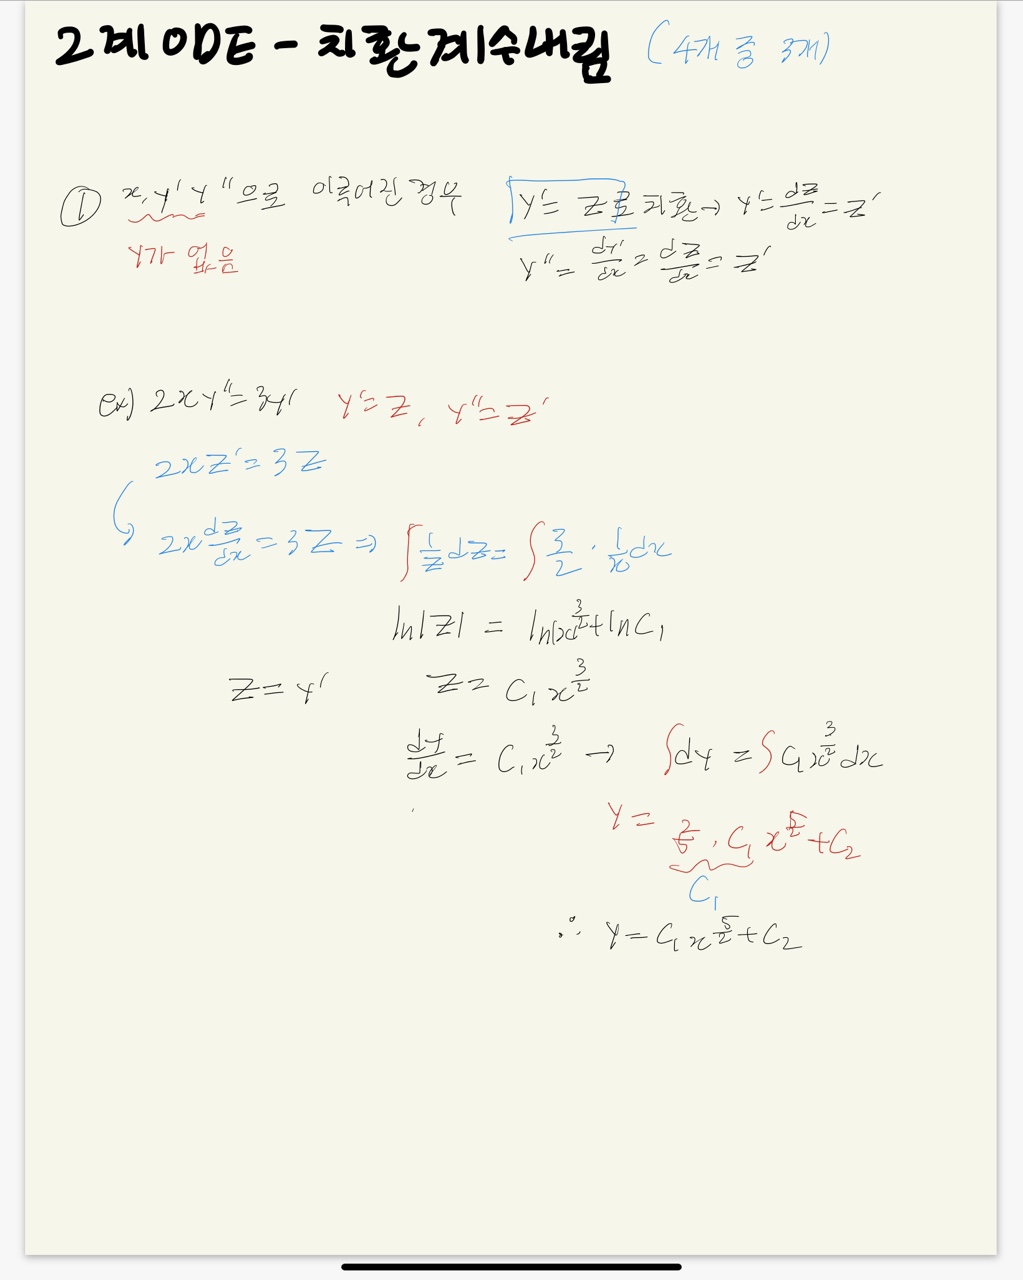 2계 ODE - 치환계수내림 (4개 중 3개)
① x, y' y''으로 이루어진 경우 y' = z로 치환 → y' = dz/dx = z'
y가 없음 y'' = dy'/dx = dz/dx = z'
ex) 2xy'' = 3y' y' = z, y'' = z'
2xz' = 3z
2x dz/dx = 3z ⇒ ∫ 1/z dz = ∫ 3/2 · 1/x dx
ln|z| = ln|x|^(3/2) + ln C₁
z = y' z = C₁x^(3/2)
dy/dx = C₁x^(3/2) → ∫dy = ∫C₁x^(3/2) dx
y = 2/5 · C₁ x^(5/2) + C₂
C₁
∴ y = C₁x^(5/2) + C₂